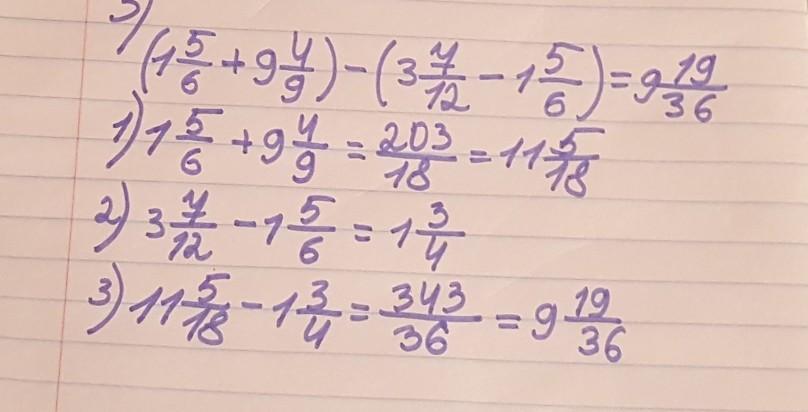 3)
(1 5/6 + 9 4/9) - (3 7/12 - 1 5/6) = 9 19/36
1) 1 5/6 + 9 4/9 = 203/18 = 11 5/18
2) 3 7/12 - 1 5/6 = 1 3/4
3) 11 5/18 - 1 3/4 = 343/36 = 9 19/36